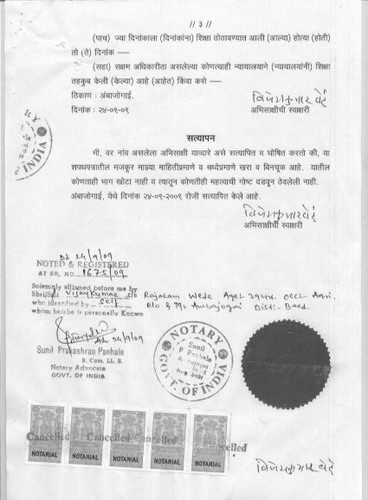 // ३ //
(पाच) ज्या दिनांकाला (दिनांकांना) शिक्षा ठोठावण्यात आली (आल्या) होत्या (होती)
तो (ते) दिनांक —
(सहा) सक्षम अधिकारीता असलेल्या कोणत्याही न्यायालयाने (न्यायालयांनी) शिक्षा
तहकुब केली (केल्या) आहे (आहेत) किंवा कसे —
ठिकाण : अंबाजोगाई.
दिनांक : २४-०९-०९
अभिसाक्षीची स्वाक्षरी
सत्यापन
मी, वर नांव असलेला अभिसाक्षी याव्दारे असे सत्यापित व घोषित करतो की, या
शपथपत्रातील मजकुर माझ्या माहितीप्रमाणे व श्रध्देप्रमाणे खरा व बिनचूक आहे. यातील
कोणताही भाग खोटा नाही व त्यातून कोणतीही महत्वाची गोष्ट दडवून ठेवलेली नाही.
अंबाजोगाई, येथे दिनांक २४-०९-२००९ रोजी सत्यापित केले आहे.
अभिसाक्षीची स्वाक्षरी
24/9/09
NOTED & REGISTERED
AT SR. NO. 1675/09
Solemnly affirmed before me by
Shri Vijaykumar s/o Rajaram Wede Age: 29 yrs. occu. Agri.
who identified by self R/o Ambajogai Dist: Beed.
whom he/she is personally Known
24/9/09
Sunil Prakashrao Panhale
B. Com. LL. B.
Notary Advocate
GOVT. OF INDIA
NOTARY
Sunil
Panhale
GOVT. OF INDIA
OF INDIA
Cancelled Cancelled Cancelled
NOTARIAL NOTARIAL NOTARIAL NOTARIAL NOTARIAL